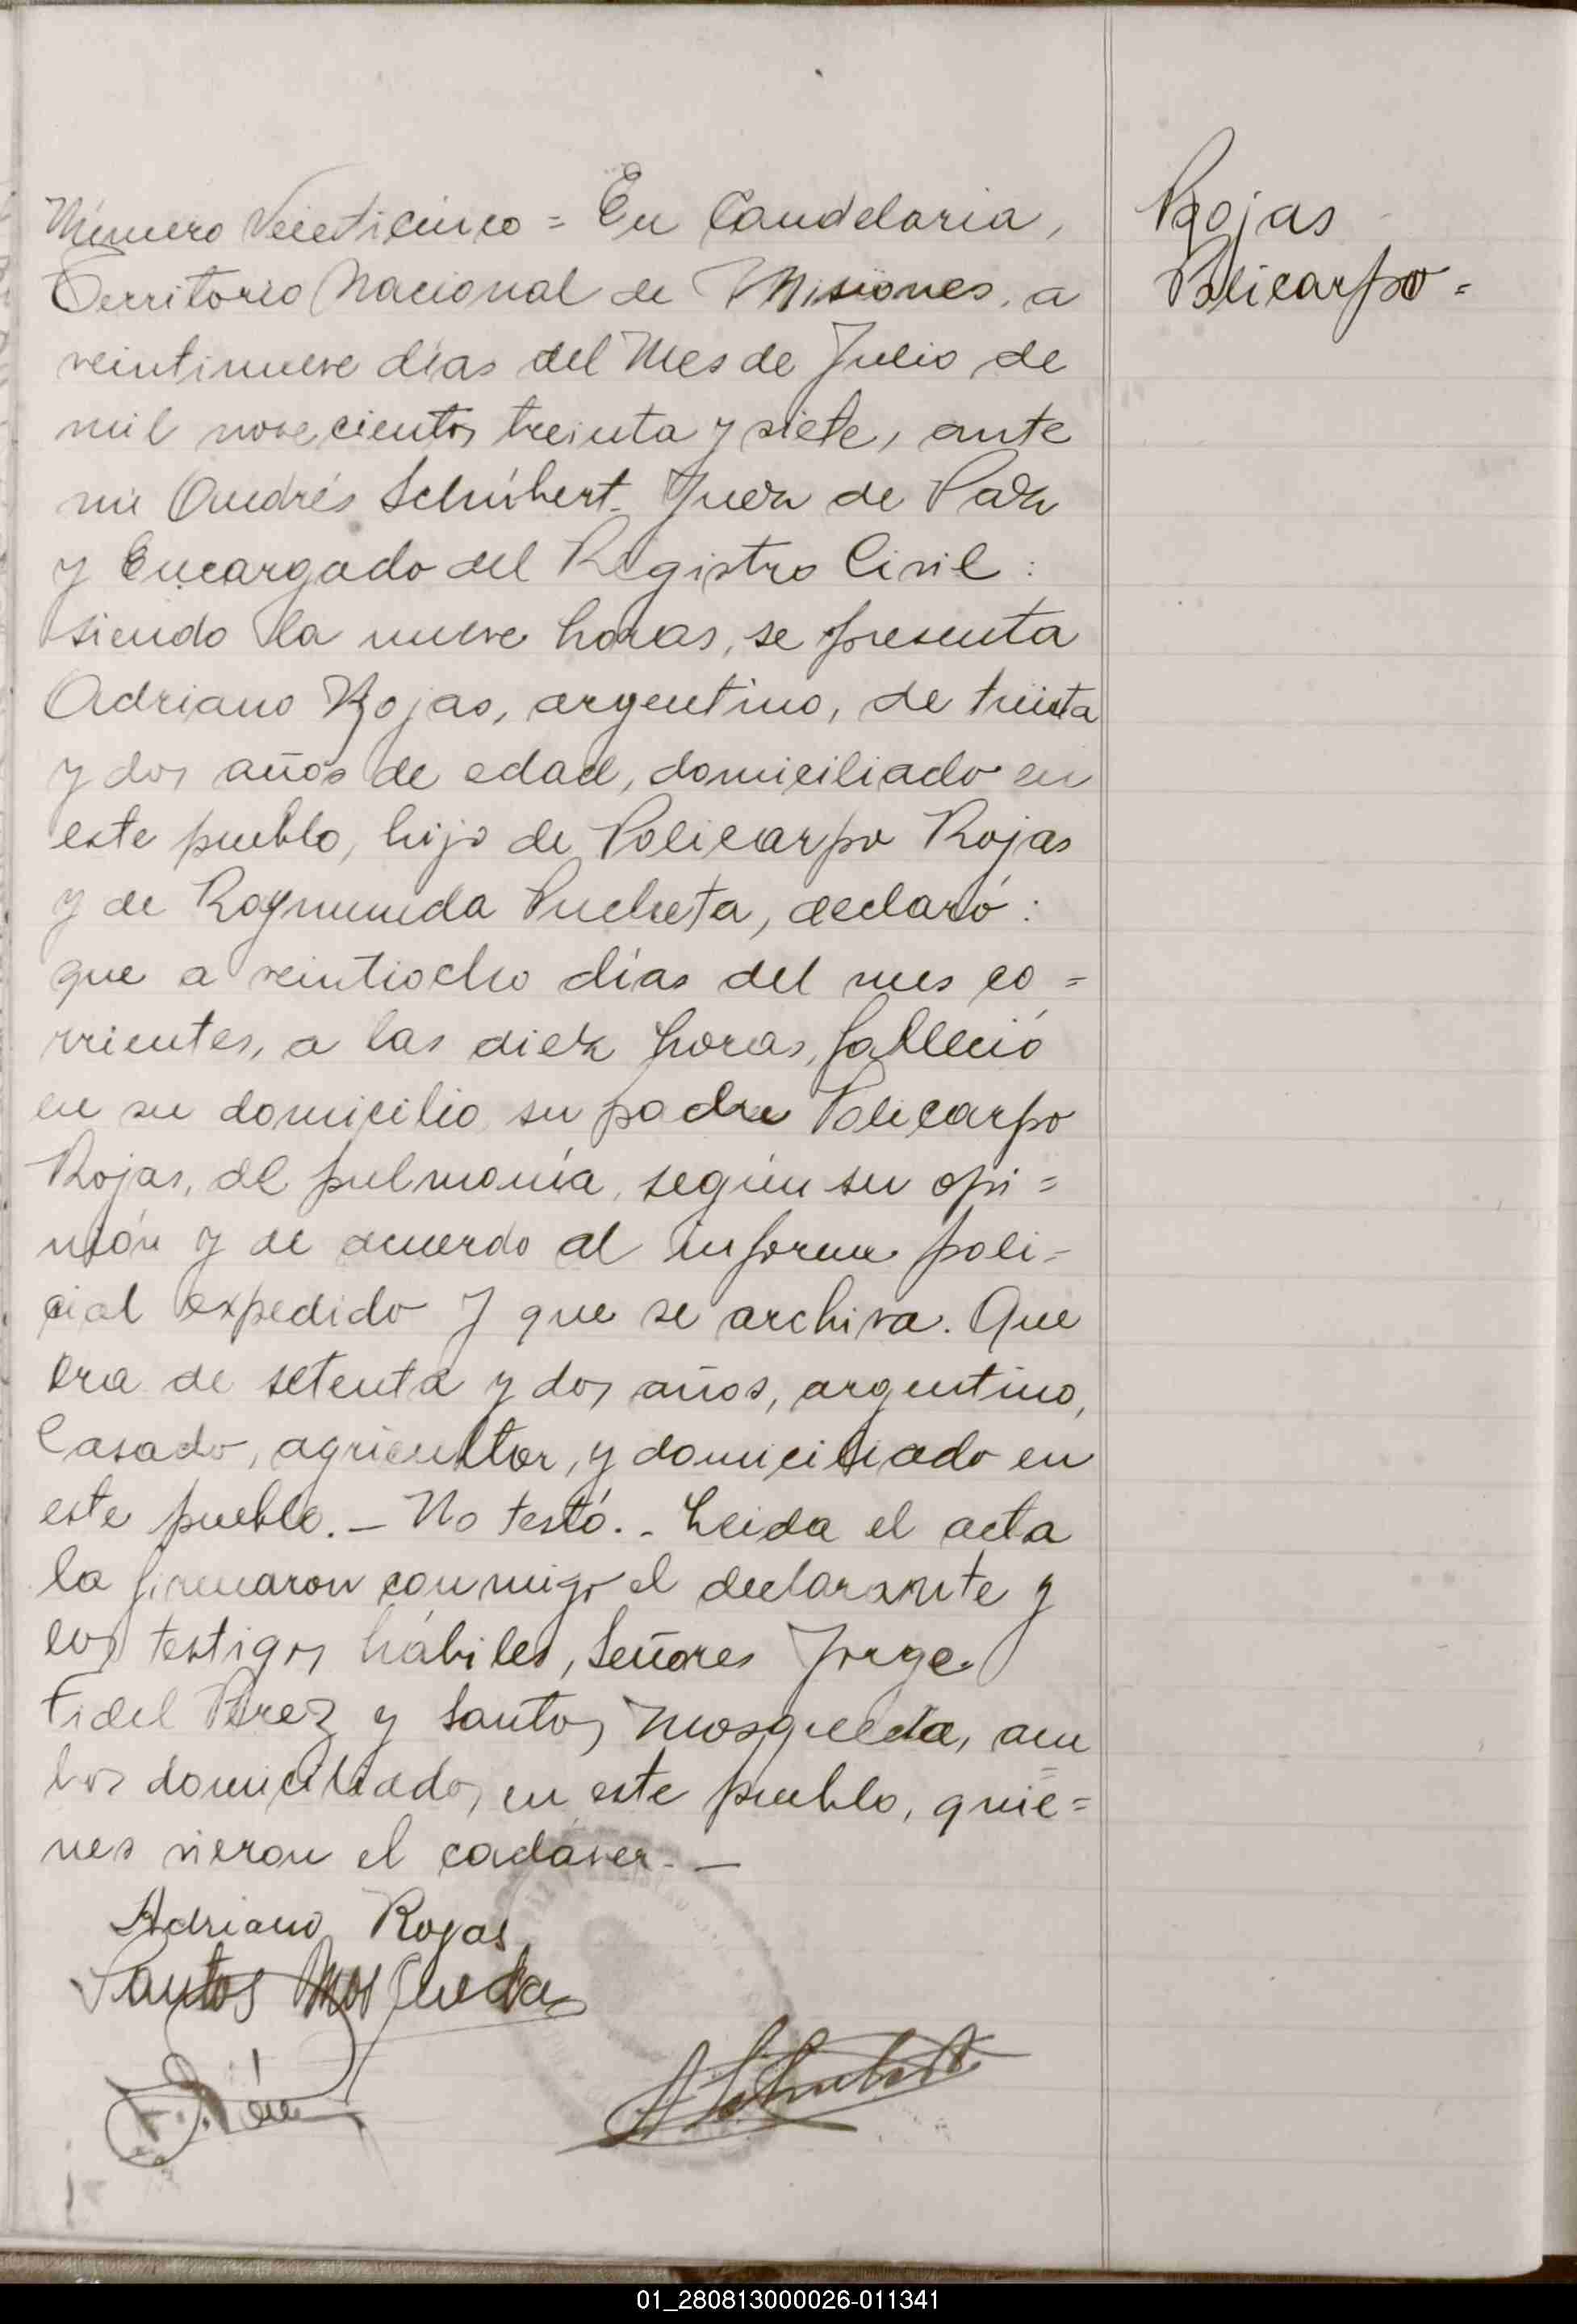 Número Veinticinco = En Candelaria,
Territorio Nacional de Misiones, a
veintinueve días del Mes de Julio de
mil novecientos treinta y siete, ante
mi Andrés Schúbert, Juez de Paz
y Encargado del Registro Civil:
siendo la nueve horas, se presenta
Adriano Rojas, argentino, de treinta
y dos años de edad, domiciliado en
este pueblo, hijo de Policarpo Rojas
y de Raymunda Pucheta, declaró:
que a veintiocho días del mes co=
rrientes, a las diez horas, falleció
en su domicilio su padre Policarpo
Rojas, de pulmonía, según su opi=
nión y de acuerdo al informe poli=
cial expedido y que se archiva. Que
era de setenta y dos años, argentino,
Casado, agricultor, y domiciliado en
este pueblo. — No testó. - Leida el acta
la firmaron conmigo el declarante y
los testigos hábiles, Señores Jorge
Fidel Pérez y Santos Mosqueda, am
bos domiciliados en este pueblo, quie=
nes vieron el cadáver. —
Adriano Rojas
Santos Mosqueda
A Schubert
Rojas
Policarpo =
01_280813000026-011341